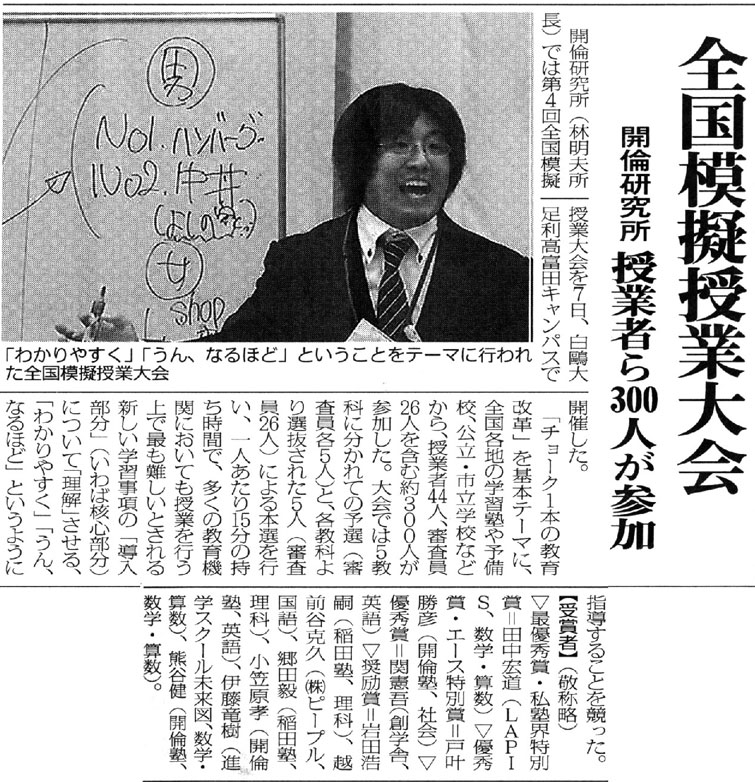 全国模擬授業大会
開倫研究所 授業者ら300人が参加
開倫研究所(林明夫所
長)では第4回全国模擬
授業大会を7日、白鷗大
足利高富田キャンパスで
男
No1.ハンバーグ
No2.牛丼
女
shop
「わかりやすく」「うん、なるほど」ということをテーマに行われ
た全国模擬授業大会
開催した。
「チョーク1本の教育
改革」を基本テーマに、
全国各地の学習塾や予備
校、公立・市立学校など
から、授業者44人、審査員
26人を含む約300人が
参加した。大会では5教
科に分かれての予選(審
査員各5人)と、各教科よ
り選抜された5人(審査
員26人)による本選を行
い、一人あたり15分の持
ち時間で、多くの教育機
関においても授業を行う
上で最も難しいとされる
新しい学習事項の「導入
部分」(いわば核心部分)
について「理解」させる、
「わかりやすく」「うん、
なるほど」というように
指導することを競った。
【受賞者】(敬称略)
▽最優秀賞・私塾界特別
賞=田中宏道(LAPI
S、数学・算数)▽優秀
賞・エース特別賞=戸叶
勝彦(開倫塾、社会)▽
優秀賞=関憲吾(創学舎、
英語)▽奨励賞=岩田浩
嗣(稲田塾、理科)、越
前谷克久(㈱ピープル、
国語)、郷田毅(稲田塾、
理科)、小笠原孝(開倫
塾、英語)、伊藤竜樹(進
学スクール未来図、数学・
算数)、熊谷健(開倫塾、
数学・算数)。